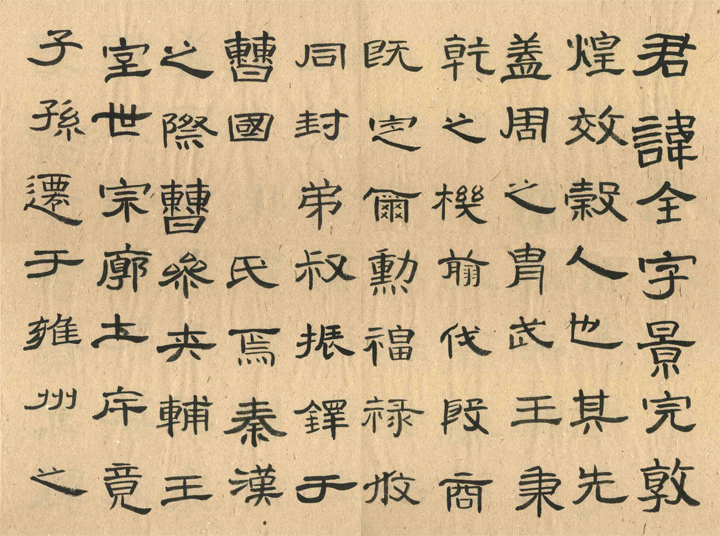 君諱全字景完敦
煌效穀人也其先
蓋周之胄武王秉
乾之機翦伐殷商
既定爾勳福祿攸
同封弟叔振鐸于
曹國氏焉秦漢
之際曹參夾輔王
室世宗廓土斥竟
子孫遷于雍州之